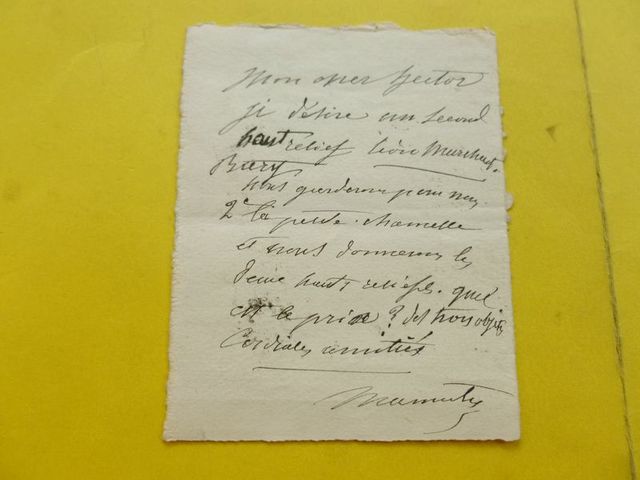 Mon cher Hector
je désire un second
haut relief lion marchant.
Barye
nous garderons pour nous
la petite chamelle
et nous donnerons les
deux hauts reliefs. quel
est le prix ? des trois objets
Cordiales amitiés